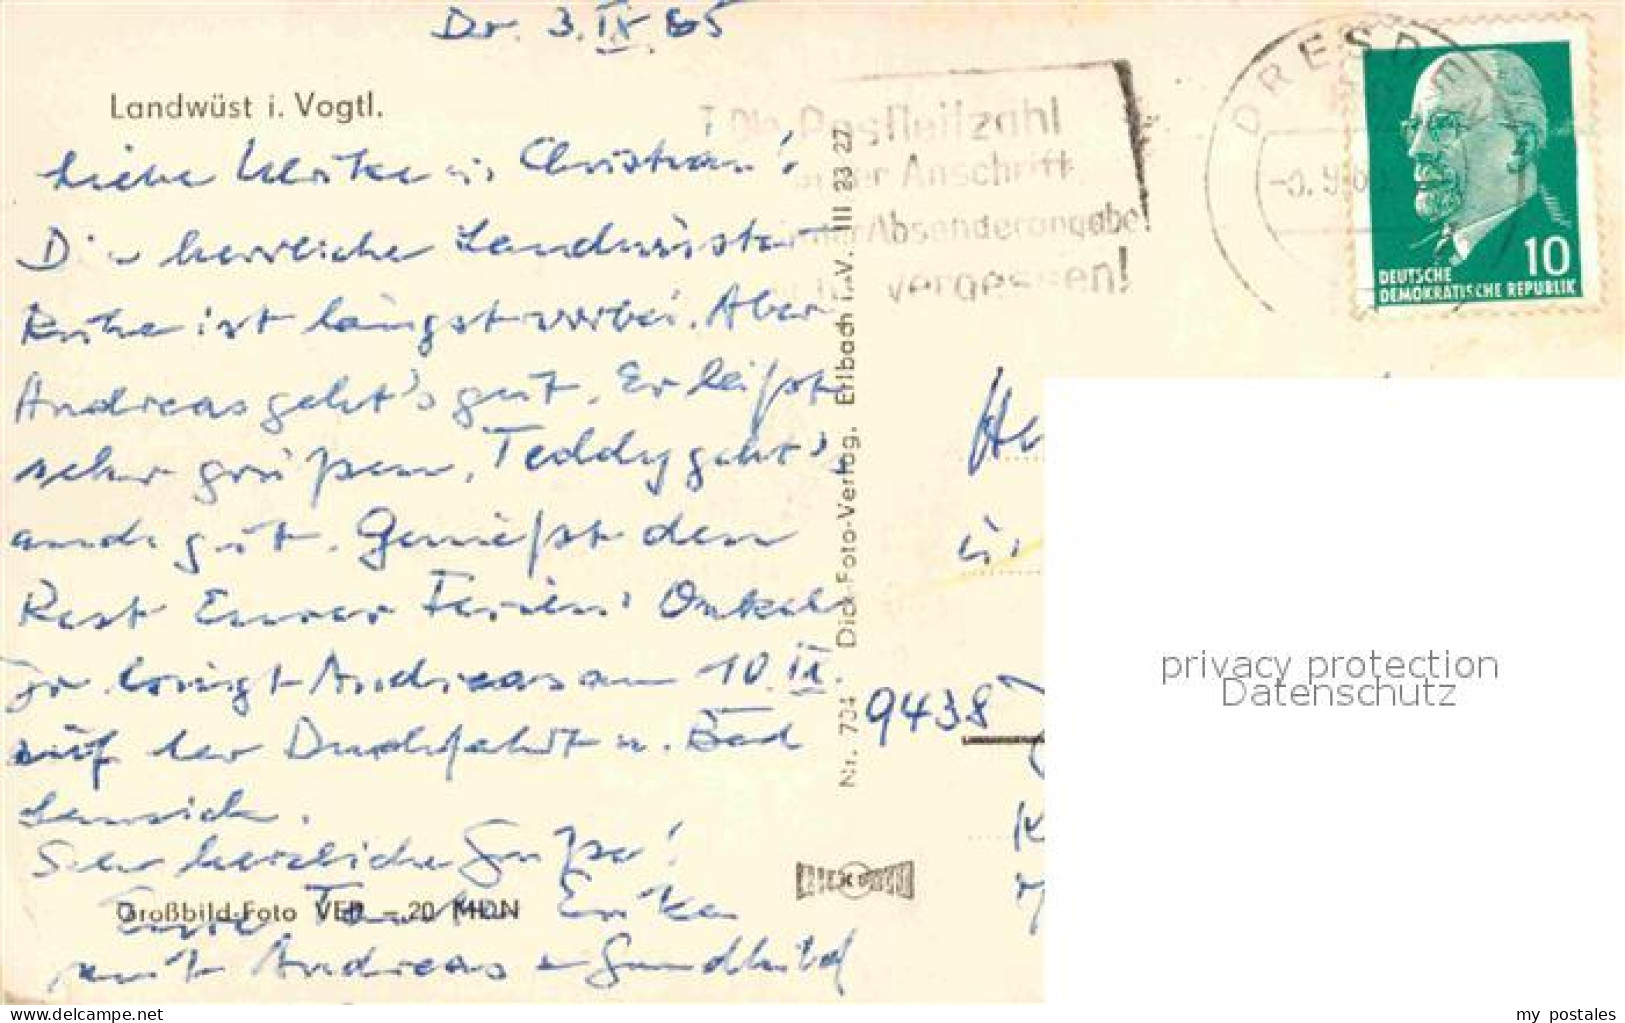 Dr. 3. IX. 65
Landwüst i. Vogtl.
Liebe Ulrike u. Christian!
Die herrliche Landwüster
Ruhe ist längst vorbei. Aber
Andreas geht's gut. Er läßt
sehr grüßen, Teddy geht's
auch gut. Genießt den
Rest Eurer Ferien! Onkel
Jo bringt Andreas am 10. IX.
auf der Durchfahrt n. Bad
Sehr herzliche Grüße!
Eure Tante Erika
mit Andreas u Gundhild
Großbild-Foto VEB -20 MDN
Nr. 704 Dick-Foto-Verlag, Erlbach i. V. III 23 27
Die Postleitzahl
in der Anschrift
Absenderangabe!
vergessen!
DRESDEN
10
DEUTSCHE
DEMOKRATISCHE REPUBLIK
u.
9438
privacy protection
Datenschutz
www.delcampe.net
my_postales